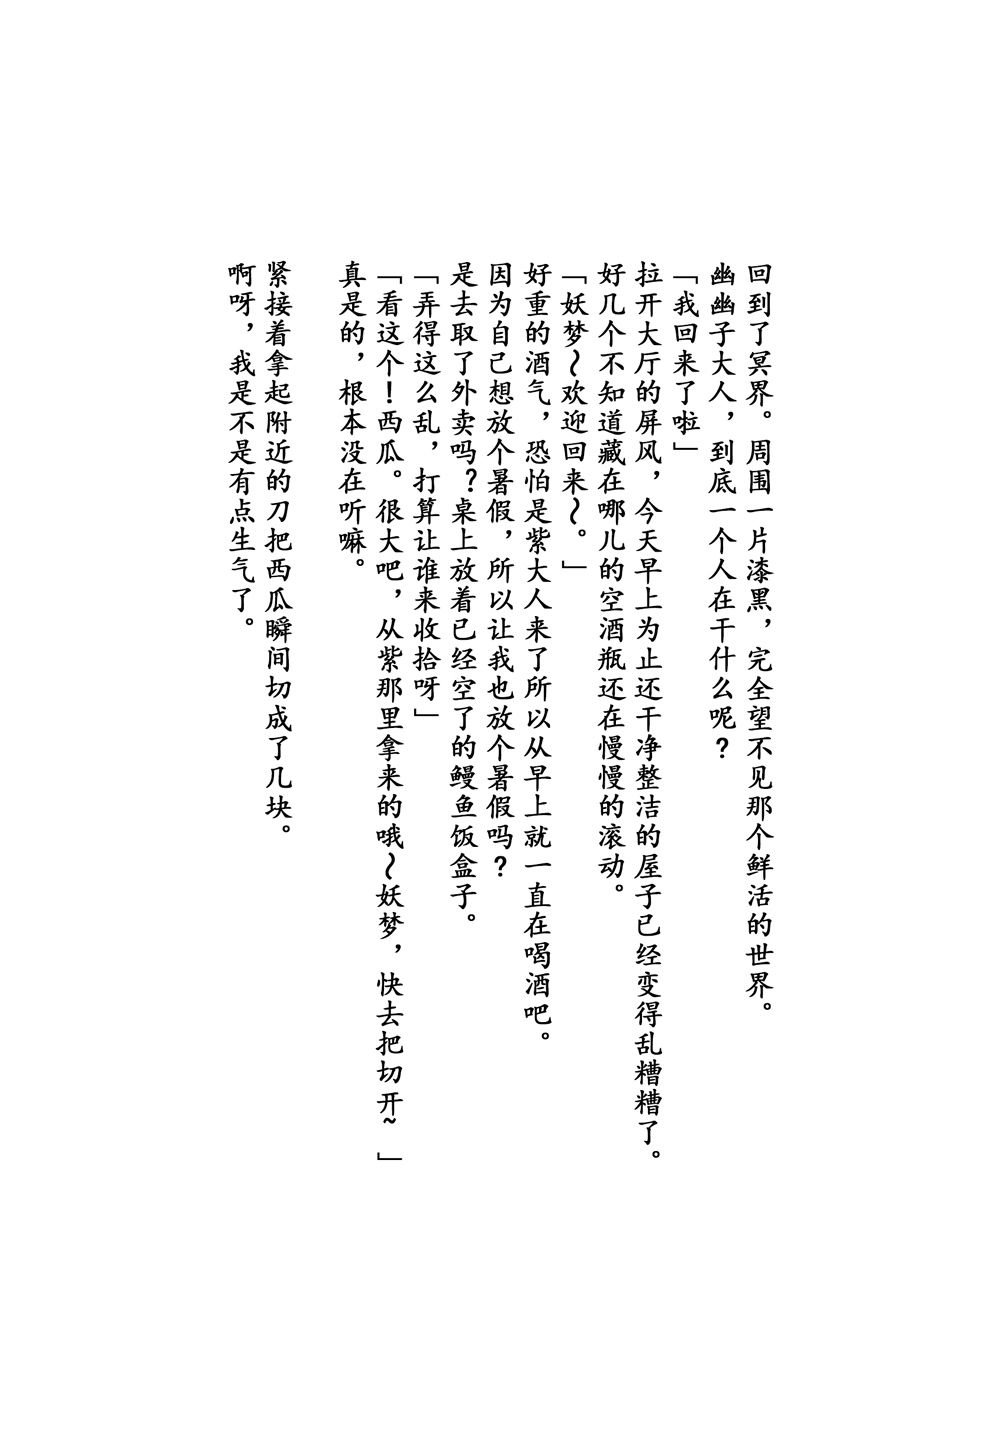 回到了冥界。周围一片漆黑，完全望不见那个鲜活的世界。
幽幽子大人，到底一个人在干什么呢？
「我回来了啦」
拉开大厅的屏风，今天早上为止还干净整洁的屋子已经变得乱糟糟了。
好几个不知道藏在哪儿的空酒瓶还在慢慢的滚动。
「妖梦～欢迎回来～。」
好重的酒气，恐怕是紫大人来了所以从早上就一直在喝酒吧。
因为自己想放个暑假，所以让我也放个暑假吗？
是去取了外卖吗？桌上放着已经空了的鳗鱼饭盒子。
「弄得这么乱，打算让谁来收拾呀」
「看这个！西瓜。很大吧，从紫那里拿来的哦～妖梦，快去把切开~」
真是的，根本没在听嘛。
紧接着拿起附近的刀把西瓜瞬间切成了几块。
啊呀，我是不是有点生气了。